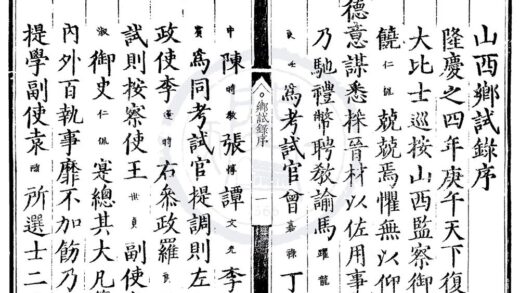 山西鄉試錄序
隆慶之四年庚午天下復
大比士巡按山西監察御
饒仁侃兢兢焉懼無以仰
德意謀悉採晉材以佐用事
乃馳禮幣聘敎諭馬躍龍
爲考試官曾丁
鄉試錄序
一
陳張譚李
爲同考試官提調則左
政使李右叅政羅
試則按察使王世貞副使
淑御史仁侃寔總其大凡
內外百執事靡不加飭乃
提學副使袁所選士二